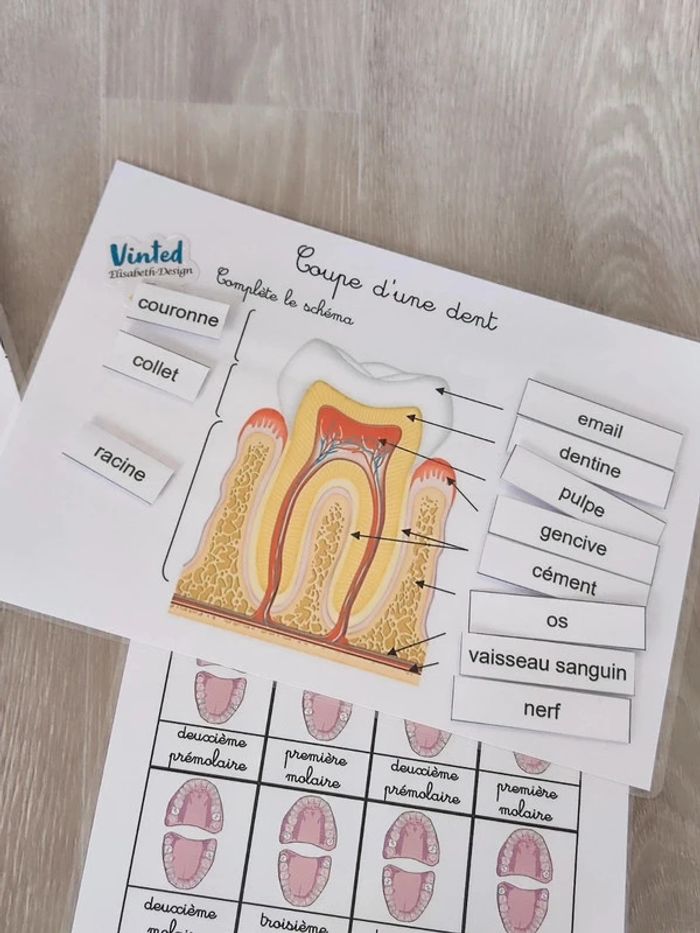 Vinted
Elisabeth-Design
Coupe d'une dent
Complète le schéma
couronne
collet
racine
email
dentine
pulpe
gencive
cément
os
vaisseau sanguin
nerf
deuxième
prémolaire
première
molaire
deuxième
prémolaire
première
molaire
deuxième
troisième